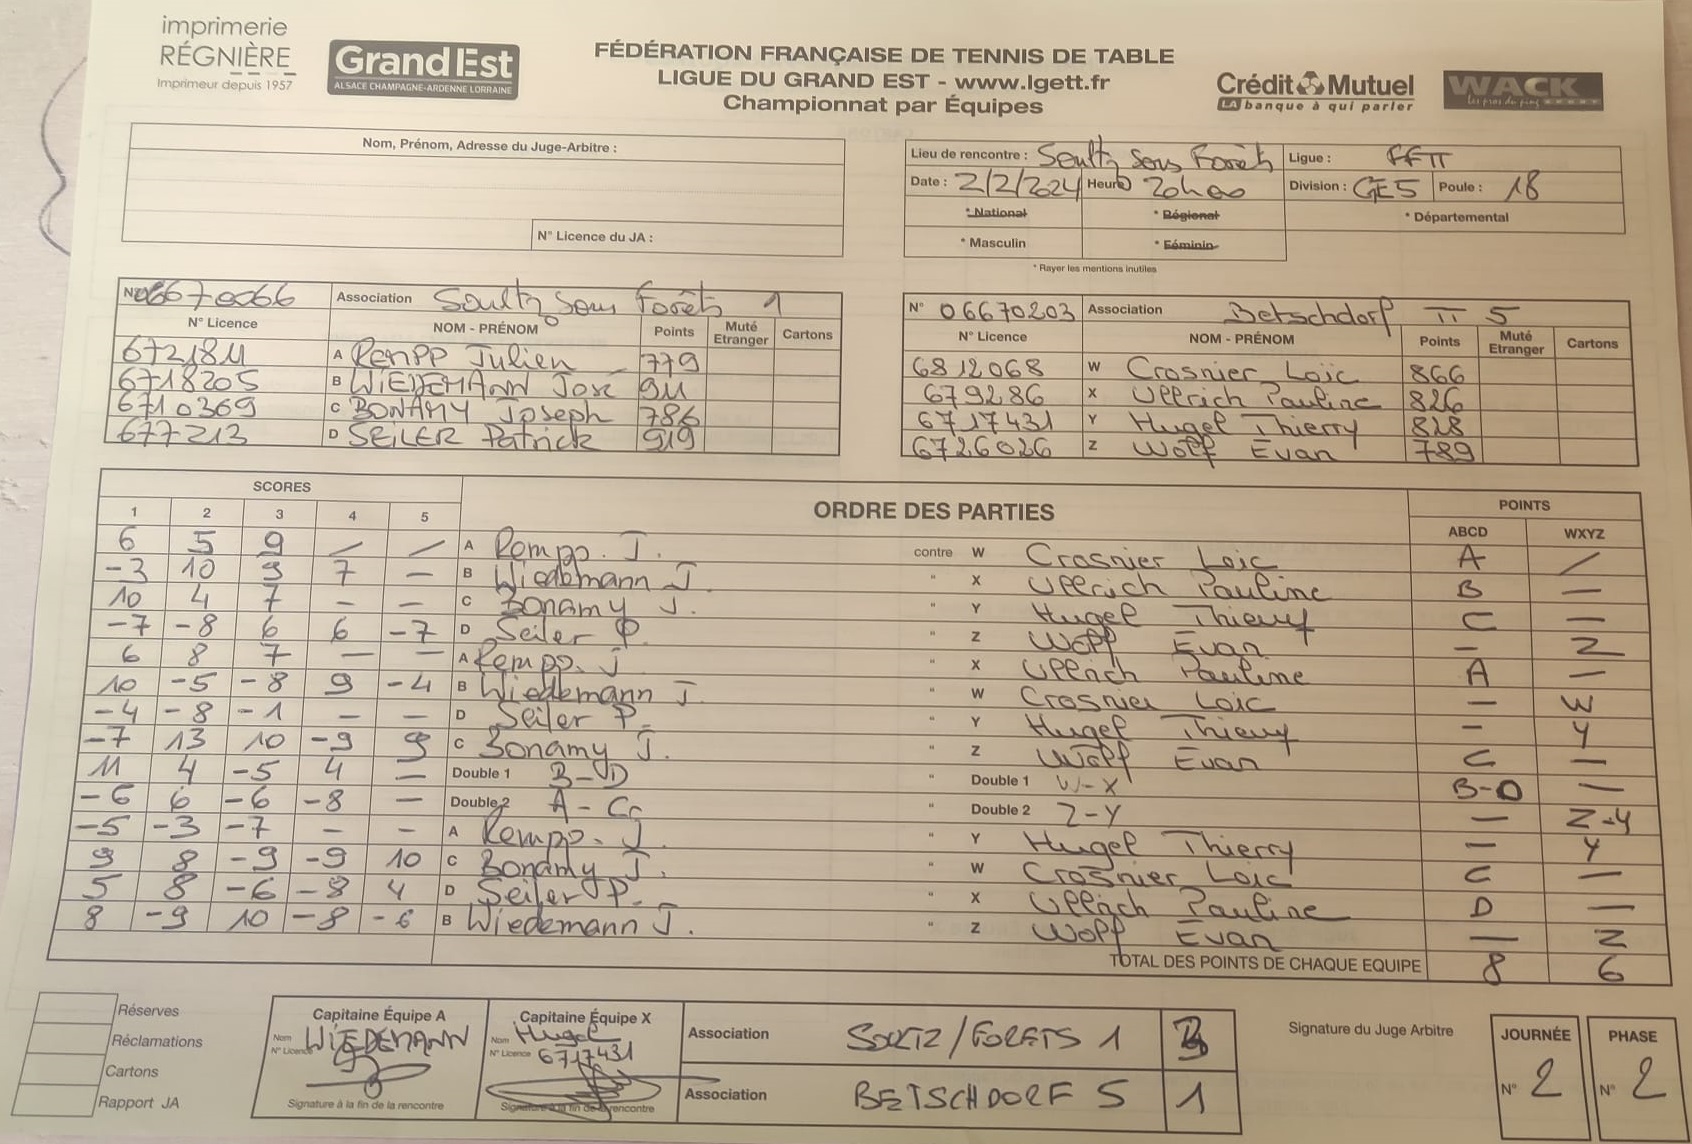 imprimerie
RÉGNIÈRE
Imprimeur depuis 1957
Grand Est
ALSACE CHAMPAGNE-ARDENNE LORRAINE
FÉDÉRATION FRANÇAISE DE TENNIS DE TABLE
LIGUE DU GRAND EST - www.lgett.fr
Championnat par Équipes
Crédit Mutuel
LA banque à qui parler
WACK
Nom, Prénom, Adresse du Juge-Arbitre :
N° Licence du JA :
Lieu de rencontre : Soultz Sous Forêts Ligue : FFTT
Date : 2/2/2024 Heure 20h00 Division : GE5 Poule : 18
* National * Régional * Départemental
* Masculin * Féminin
* Rayer les mentions inutiles
N° 06670066 Association Soultz Sous Forêts 1
N° Licence NOM - PRÉNOM Points Muté Etranger Cartons
672184 A REMPP Julien 779
6718205 B WIEDEMANN José 911
6710369 C BONAMY Joseph 786
677213 D SEILER Patrick 919
N° 06670203 Association Betschdorf TT 5
N° Licence NOM - PRÉNOM Points Muté Etranger Cartons
6812068 W Crosnier Loïc 866
679286 X Ullrich Pauline 826
6717431 Y Hugel Thierry 828
6726026 Z Wolf Evan 789
SCORES ORDRE DES PARTIES POINTS
1 2 3 4 5 ABCD WXYZ
6 5 9 / / A Rempp. J. contre W Crosnier Loic A /
-3 10 9 7 - B Wiedemann J. " X Ullrich Pauline B -
10 4 7 - - C Bonamy J. " Y Hugel Thierry C -
-7 -8 6 6 -7 D Seiler P. " Z Wolf Evan - Z
6 8 7 - - A Rempp. J " X Ullrich Pauline A -
10 -5 -8 9 -4 B Wiedemann J. " W Crosnier Loic - W
-4 -8 -1 - - D Seiler P. " Y Hugel Thierry - Y
-7 13 10 -9 9 C Bonamy J. " Z Wolf Evan C -
11 4 -5 4 - Double 1 B-D " Double 1 W-X B-D -
-6 6 -6 -8 - Double 2 A-C " Double 2 Z-Y - Z-Y
-5 -3 -7 - - A Rempp. J. " Y Hugel Thierry - Y
9 8 -9 -9 10 C Bonamy J. " W Crosnier Loic C -
5 8 -6 -8 4 D Seiler P. " X Ullrich Pauline D -
8 -9 10 -8 -6 B Wiedemann J. " Z Wolf Evan - Z
TOTAL DES POINTS DE CHAQUE EQUIPE 8 6
Réserves
Réclamations
Cartons
Rapport JA
Capitaine Équipe A
Nom WIEDEMANN
N° Licence
Signature à la fin de la rencontre
Capitaine Équipe X
Nom Hugel
N° Licence 6717431
Signature à la fin de la rencontre
Association SOULTZ/FORETS 1 3
Association BETSCHDORF 5 1
Signature du Juge Arbitre
JOURNÉE
N° 2
PHASE
N° 2